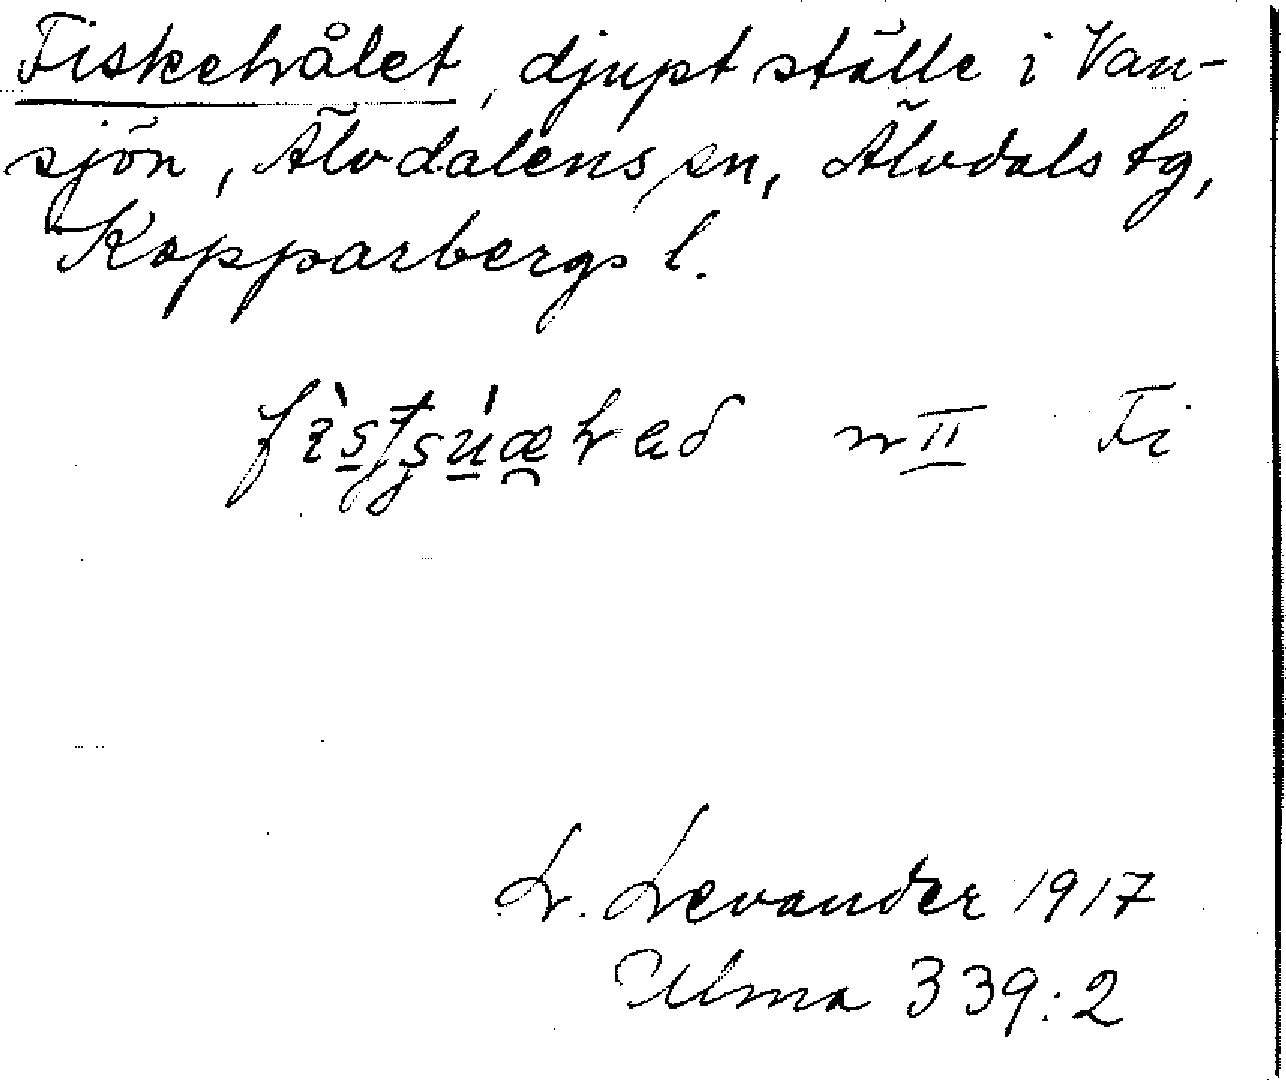 Fiskehålet, djupt ställe i Van-
sjön, Älvdalens sn, Älvdals tg,
Kopparbergs l.
n II Fi
L. Levander 1917
Ulma 339:2